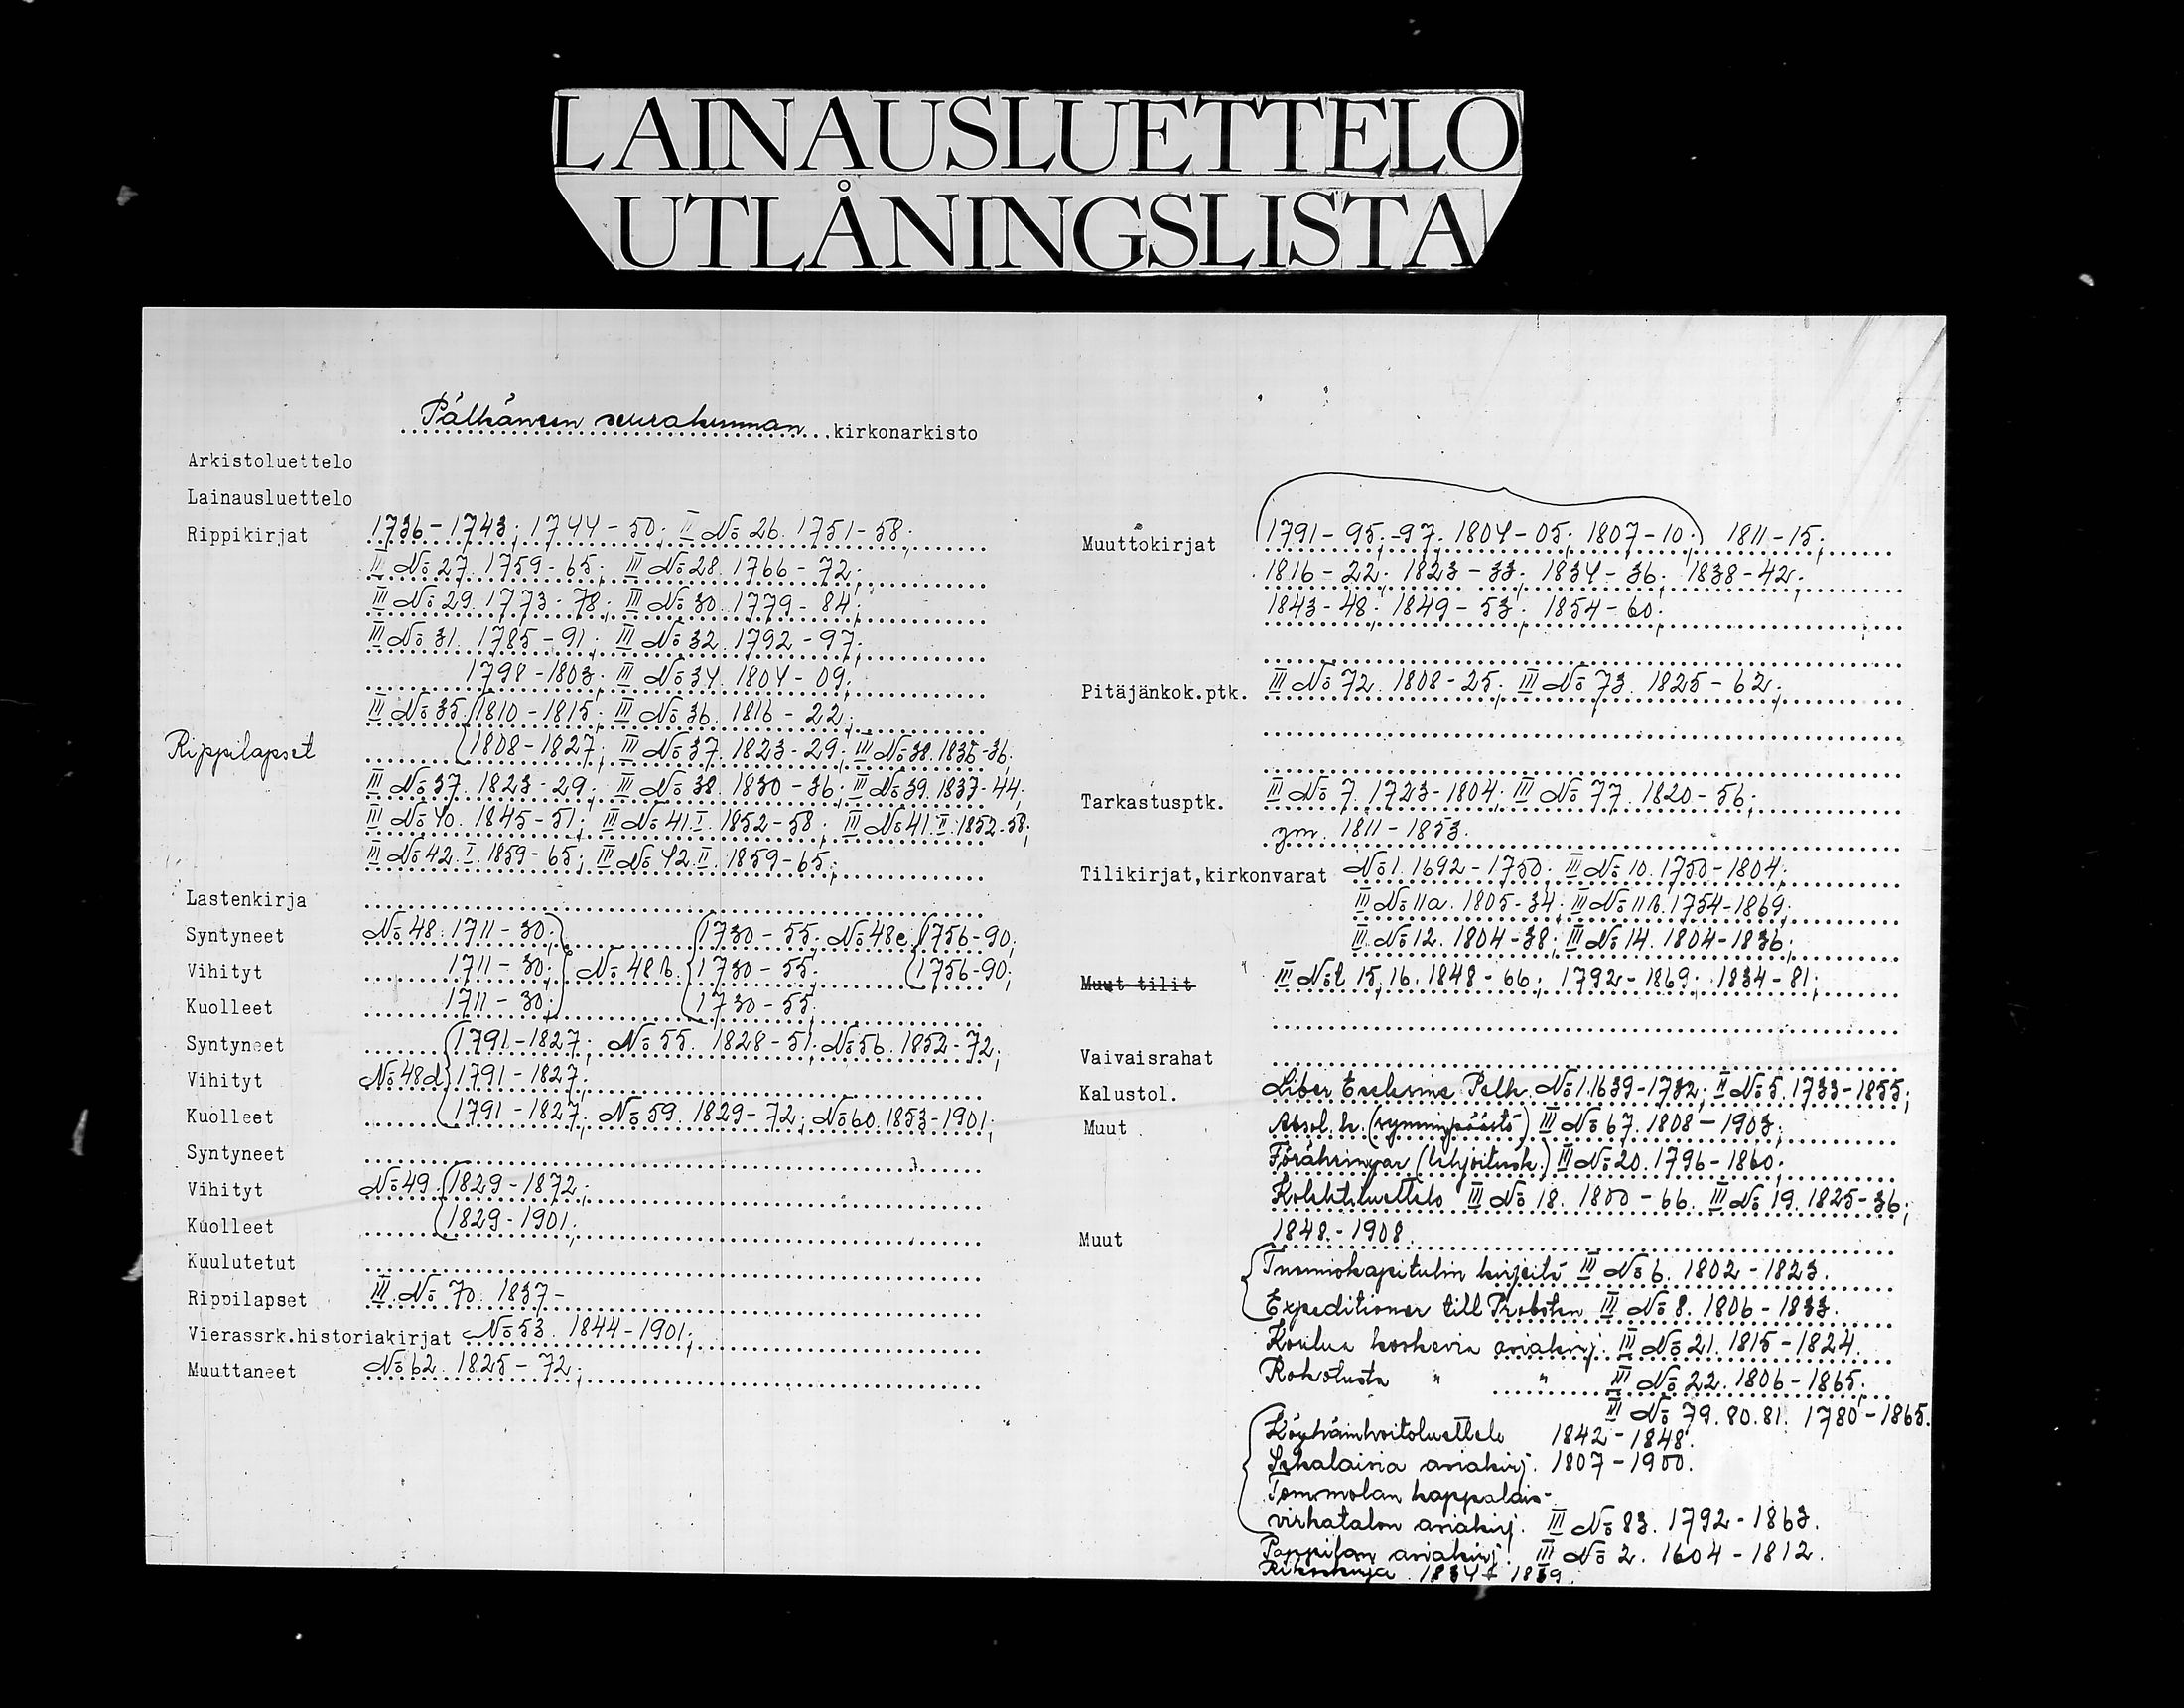 LAINAUSLUETTELO
UTLÅNINGSLISTA
Pälkäneen seurakunnan kirkonarkisto
Arkistoluettelo
Lainausluettelo
Rippikirjat 1736-1743; 1744-50; II No 26. 1751-58;
II No 27. 1759-65; III No 28. 1766-72;
III No 29. 1773-78; III No 30. 1779-84;
III No 31. 1785-91; III No 32. 1792-97;
1798-1803; III No 34. 1804-09;
III No 35 1810-1815; III No 36. 1816-22;
Rippilapset 1808-1827; III No 37. 1823-29; III No 38. 1836-36;
III No 37. 1823-29; III No 38. 1830-36; III No 39. 1837-44;
III No 40. 1845-51; III No 41.I. 1852-58; III No 41.II. 1852-58;
III No 42.I. 1859-65; III No 42.II. 1859-65;
Lastenkirja
Syntyneet No 48. 1711-30; 1730-55; No 48c 1756-90;
Vihityt 1711-30; No 48b. 1730-55; 1756-90;
Kuolleet 1711-30; 1730-55;
Syntyneet 1791-1827; No 55. 1828-51; No 56. 1852-72;
Vihityt No 48d 1791-1827;
Kuolleet 1791-1827; No 59. 1829-72; No 60. 1853-1901;
Syntyneet
Vihityt No 49. 1829-1872;
Kuolleet 1829-1901;
Kuulutetut
Rippilapset III No 70. 1837-
Vierassrk.historiakirjat No 53. 1844-1901;
Muuttaneet No 62. 1825-72;
Muuttokirjat 1791-95;-97; 1804-05; 1807-10; 1811-15;
1816-22; 1823-33; 1834-36; 1838-42;
1843-48; 1849-53; 1854-60;
Pitäjänkok.ptk. III No 72. 1808-25; III No 73. 1825-62;
Tarkastusptk. II No 7. 1723-1804; III No 77. 1820-56;
ym. 1811-1853.
Tilikirjat,kirkonvarat No 1. 1692-1750; III No 10. 1750-1804;
III No 11a. 1805-34; III No 11b. 1754-1869;
III No 12. 1804-38; III No 14. 1804-1836;
Muut tilit III No 15,16. 1848-66; 1792-1869; 1834-81;
Vaivaisrahat
Kalustol. Liber Ecclesiae Pelk. No 1. 1639-1732; II No 5. 1733-1855;
Muut Absol. k. (synninpäästö) III No 67. 1808-1903;
Föräringar (lahjoitusk.) III No 20. 1796-1860;
Kolehtiluettelo III No 18. 1800-66. III No 19. 1825-36;
Muut 1848-1908.
Tuomiokapitulin kirjeitä III No 6. 1802-1823.
Expeditioner till Probsten III No 8. 1806-1833.
Koulua koskevia asiakirj. III No 21. 1815-1824.
Rokotusta " " III No 22. 1806-1865;
III No 79. 80. 81. 1780-1865.
Köyhäinhoitoluettelo 1842-1848.
Sekalaisia asiakirj. 1807-1900.
Tommolan kappalais-
virkatalon asiakirj. III No 83. 1792-1863.
Pappilan asiakirj. III No 2. 1604-1812.